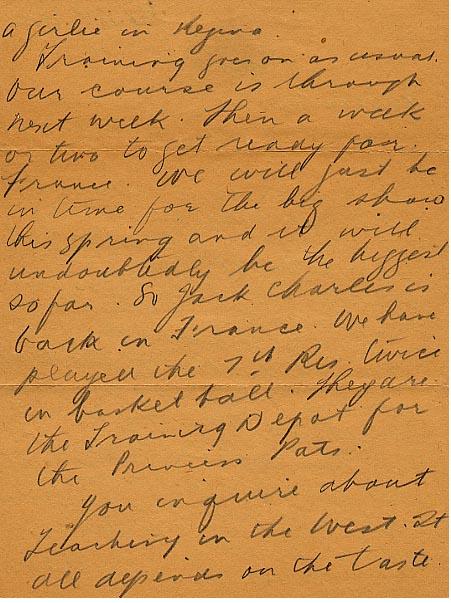 a girlie in Regina.
Training goes on as usual.
Our course is through
next week. Then a week
or two to get ready for
France. We will just be
in time for the big show
this spring and it will
undoubtedly be the biggest
so far. So Jack Charles is
back in France. We have
played the 7th Res. twice
in basket ball. They are
the Training Depot for
the Princess Pats.
You inquire about
teaching in the West. It
all depends on the taste